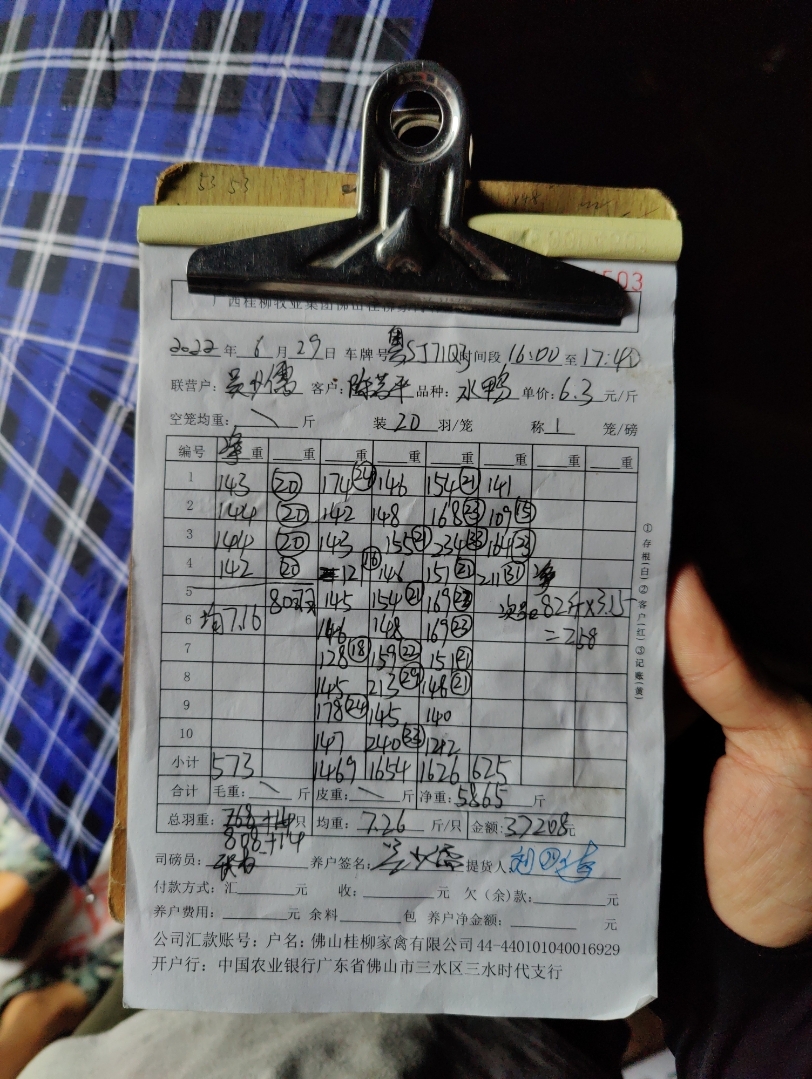 503
广西桂柳牧业集团佛山桂柳家
2022年6月29日 车牌号 粤SJ7103 时间段 16:00 至 17:40
联营户: 客户: 品种: 水鸭 单价: 6.3 元/斤
空笼均重: \ 斤 装 20 羽/笼 称 1 笼/磅
编号 重 重 重 重 重 重 重 重
1 143 ⑳ 174 ㉔ 146 154 ㉑ 141
2 144 ⑳ 142 148 168 ㉓ 109 ⑮
3 144 ⑳ 143 155 ㉑ 234 ㉝ 164 ㉓
4 142 ⑳ 121 ⑯ 146 151 ㉑ 211 ㉛ 净
5 80只 145 154 ㉑ 169 ㉓ 82斤×3.15
6 均7.16 146 148 169 ㉓ =258
7 128 ⑱ 159 ㉒ 151 ㉑
8 145 213 ㉙ 148 ㉑
9 178 ㉔ 145 140
10 147 240 ㉝ 142
小计 573 1469 1654 1626 625
合计 毛重: \ 斤 皮重: \ 斤 净重: 5865 斤
总羽重: 768+14 只 均重: 7.26 斤/只 金额: 37208元
808+14
司磅员: 养户签名: 提货人:
付款方式: 汇 元 收: 元 欠(余)款: 元
养户费用: 元 余料 包 养户净金额: 元
公司汇款账号: 户名: 佛山桂柳家禽有限公司 44-440101040016929
开户行: 中国农业银行广东省佛山市三水区三水时代支行
①存根(白)②客户(红)③记账(黄)